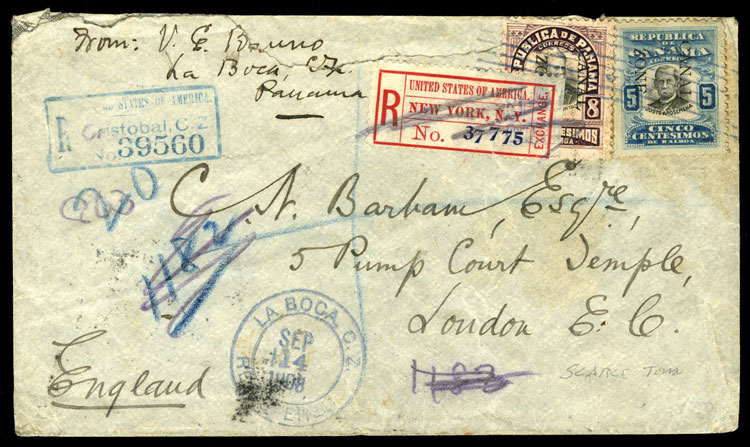 From: V. E. Bruno
La Boca, C.Z.
Panama
REPUBLICA DE PANAMA
CORREOS
CANAL
8
REPUBLICA
DE
PANAMA
CANAL
ZONE
5 5
JUSTO AROSEMENA
CINCO
CENTESIMOS
DE BALBOA
UNITED STATES OF AMERICA.
R NEW YORK, N. Y.
No. 37775
EXCHANGE
STATES OF AMERICA.
R Cristobal, C. Z.
No 39560
220
1182
C. N. Barham, Esqre,
5 Pump Court Temple,
London E. C.
England
LA BOCA, C. Z.
SEP
14
1908
1183
SCARCE Town